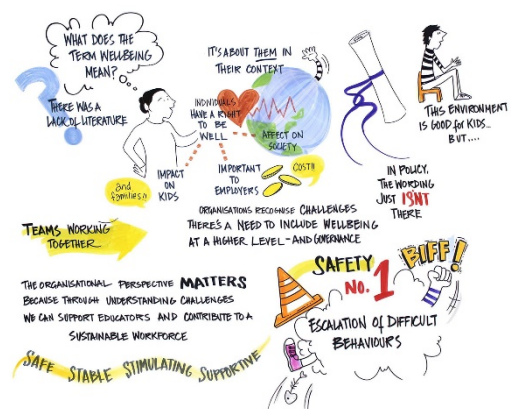 WHAT DOES THE
TERM WELLBEING
MEAN?
THERE WAS A
LACK OF LITERATURE
IT'S ABOUT THEM IN
THEIR CONTEXT
INDIVIDUALS
HAVE A RIGHT
TO BE
WELL
AFFECT ON
SOCIETY
and
families!!
IMPACT
ON
KIDS
IMPORTANT
TO
EMPLOYERS
COST!!
THIS ENVIRONMENT
IS GOOD for KIDS...
BUT....
IN POLICY,
THE WORDING
JUST ISN'T
THERE
TEAMS WORKING
TOGETHER
ORGANISATIONS RECOGNISE CHALLENGES
THERE'S A NEED TO INCLUDE WELLBEING
AT A HIGHER LEVEL - AND GOVERNANCE
THE ORGANISATIONAL PERSPECTIVE MATTERS
BECAUSE THROUGH UNDERSTANDING CHALLENGES
WE CAN SUPPORT EDUCATORS AND CONTRIBUTE TO A
SUSTAINABLE WORKFORCE
SAFE STABLE STIMULATING SUPPORTIVE
SAFETY
NO. 1
BIFF!
ESCALATION OF DIFFICULT
BEHAVIOURS